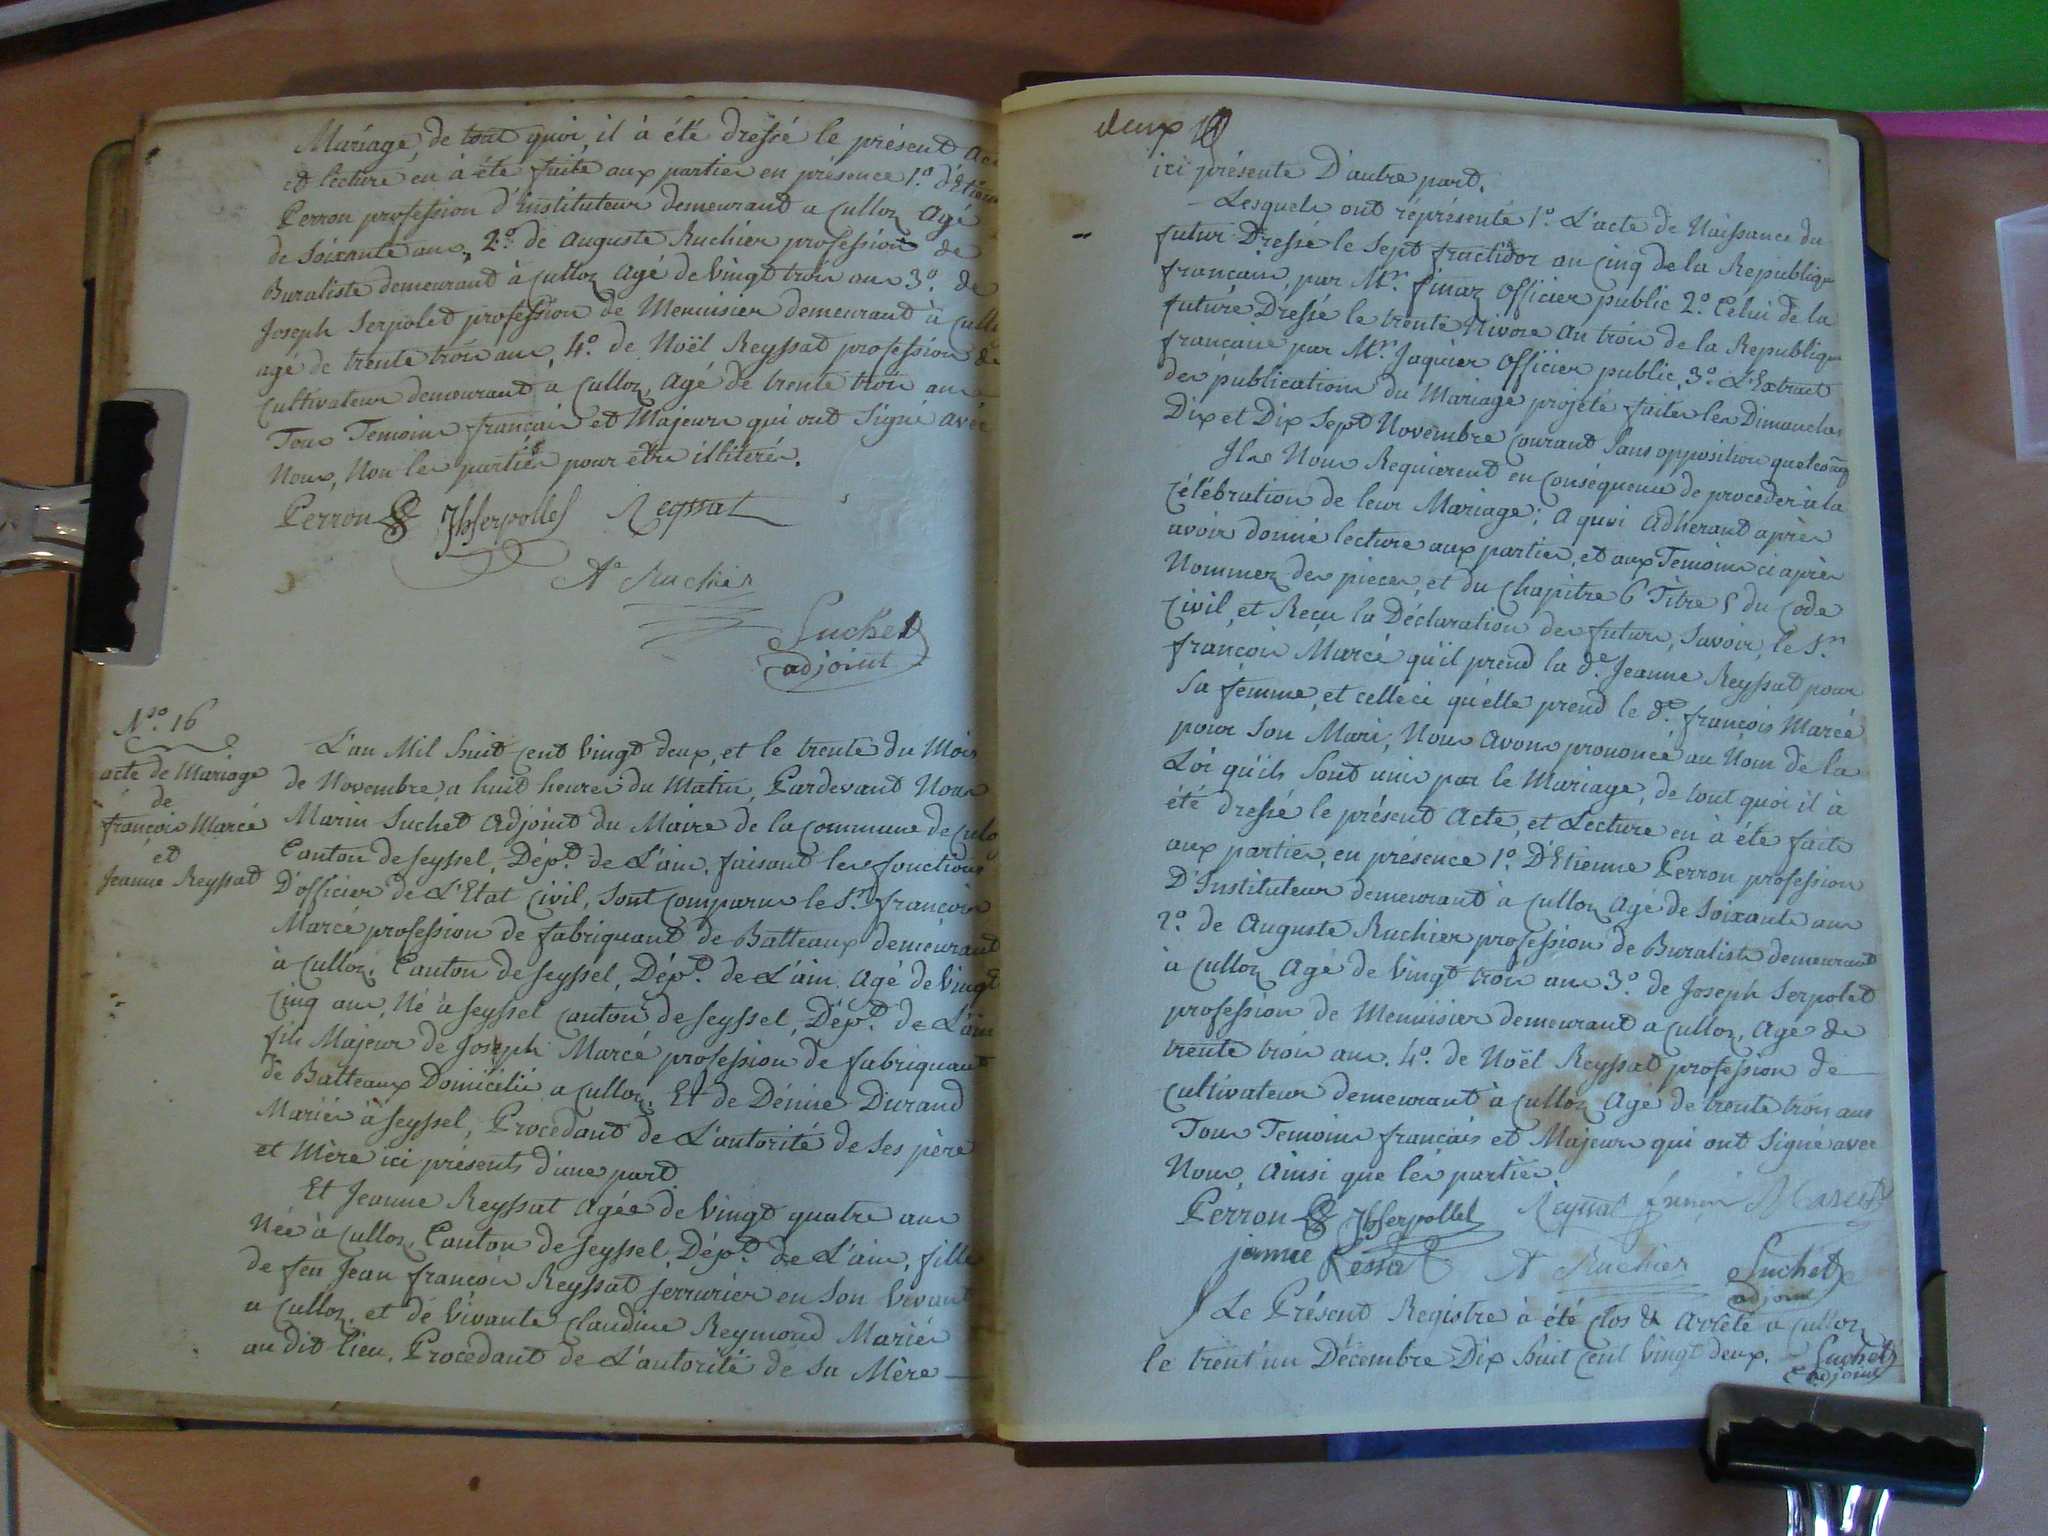 Mariage, de tout quoi, il à été dressé le présent ac
et lecture en à été faite aux parties en présence 1.º d'Etienne
Perron profession d'Instituteur demeurant a culloz Agé
de Soixante ans, 2.º de Auguste Ruchier profession de
Buraliste demeurant à culloz Agé de vingt trois ans 3.º de
Joseph Serpolet profession de Menuisier demeurant à cullo
agé de trente trois ans, 4.º de Noël Reyssat profession de
cultivateur demeurant à culloz, Agé de trente trois ans
Tous Temoins français et Majeurs qui ont Signé avec
Nous, Non les parties pour etre illiterés.
Perron Jh Serpollet Reyssat
Ate Ruchier
Suchet
adjoint
N.ro 16
acte de Mariage
de
françois Marcé
et
Jeanne Reyssat
L'an Mil huit cent vingt deux, et le trente du Mois
de Novembre, a huit heures du Matin, Pardevant Nous
Marin Suchet Adjoint du Maire de la commune de culo
Canton de seyssel, Dép.t de L'ain, faisant les fonctions
D'officier de L'Etat civil, Sont comparus le S.r françois
Marcé profession de fabriquant de Batteaux demeurant
à culloz, Canton de seyssel, Dép.t de L'ain, Agé de vingt
cinq ans, Né à seyssel canton de seyssel, Dép.t de L'ain
fils Majeur de Joseph Marcé profession de fabriquant
de Batteaux Domicilié a culloz, Et de Dénise Durand
Mariés à seyssel, Procédant de L'autorité de ses père
et Mère ici présents d'une part.
Et Jeanne Reyssat Agée de vingt quatre ans
Née à culloz, Canton de seyssel, Dép.t de L'ain, fille
de feu Jean françois Reyssat serrurier en son vivant
a culloz, et de vivante claudine Reymond Mariés
au dit lieu, Procédant de L'autorité de sa Mère
deux
ici présente D'autre part.
Lesquels ont réprésenté 1.º L'acte de Naissance du
futur Dressé le Sept fructidor an cinq de la Republique
française, par M.r finaz officier public 2.º Celui de la
future Dréssé le trente Nivose an trois de la Republique
française par M.r Jaquier officier public, 3.º L'Extrait
des publications du Mariage projeté faites les Dimanches
Dix et Dix Sept Novembre courant Sans opposition quelconq
Ils Nous Requierent en conséquence de procéder à la
célébration de leur Mariage; A quoi Adherant après
avoir donné lecture aux parties, et aux Temoins ci après
Nommez des pieces, et du chapitre 6 Titre 5 du code
civil, et Reçu la Déclaration des futurs, Savoir, le S.r
françois Marcé qu'il prend la d.e Jeanne Reyssat pour
sa femme, et celleci qu'elle prend le d.t françois Marcé
pour son Mari, Nous avons prononcé au Nom de la
Loi qu'ils Sont unis par le Mariage, de tout quoi il à
été dressé le présent Acte, et Lecture en à été faite
aux parties, en présence 1.º D'Etienne Perron profession
D'Instituteur demeurant à culloz Agé de Soixante ans
2.º de Auguste Ruchier profession de Buraliste demeurant
à culloz Agé de vingt trois ans 3.º de Joseph Serpolet
profession de Menuisier demeurant a culloz, Agé de
trente trois ans. 4.º de Noël Reyssat profession de
cultivateur demeurant à culloz Agé de trente trois ans
Tous Temoins français et Majeurs qui ont Signé avec
Nous, Ainsi que les parties.
Perron Jh Serpollet Reyssat Marcé
jenne Ressat A Ruchier Suchet
adjoint
Le Présent Registre à été clos & Arrêté a culloz
le trent'un Décembre Dix huit cent vingt deux. Suchet
adjoint